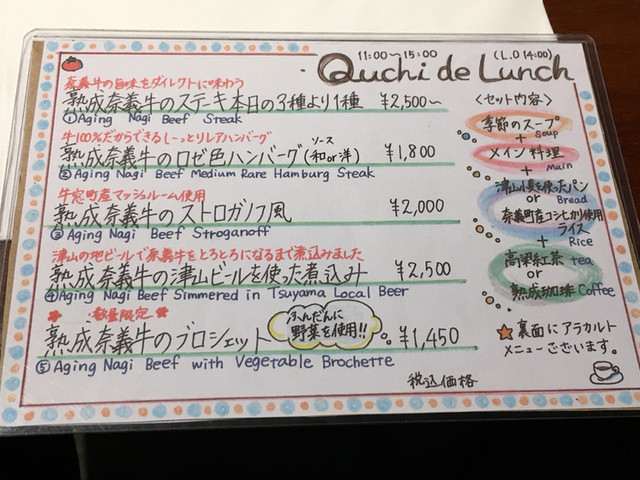 11:00〜15:00 (L.O 14:00)
Ouchi de Lunch
奈義牛の旨味をダイレクトに味わう
熟成奈義牛のステーキ本日の3種より1種 ¥2,500〜
①Aging Nagi Beef Steak
牛100%だからできるしーっとりレアハンバーグ
熟成奈義牛のロゼ色ハンバーグ(和or洋) ¥1,800
ソース
②Aging Nagi Beef Medium Rare Hamburg Steak
牛窓町産マッシュルーム使用
熟成奈義牛のストロガノフ風 ¥2,000
③Aging Nagi Beef Stroganoff
津山の地ビールで奈義牛をとろとろになるまで煮込みました
熟成奈義牛の津山ビールを使った煮込み ¥2,500
④Aging Nagi Beef Simmered in Tsuyama Local Beer
数量限定
熟成奈義牛のブロシェット ¥1,450
ふんだんに
野菜を使用!!
⑤Aging Nagi Beef with Vegetable Brochette
税込価格
<セット内容>
季節のスープ
Soup
+
メイン料理
Main
+
津山小麦を使ったパン
Bread
or
奈義町産コシヒカリ使用
ライス
Rice
+
高梁紅茶 tea
or
熟成珈琲 Coffee
★裏面にアラカルト
メニューございます。